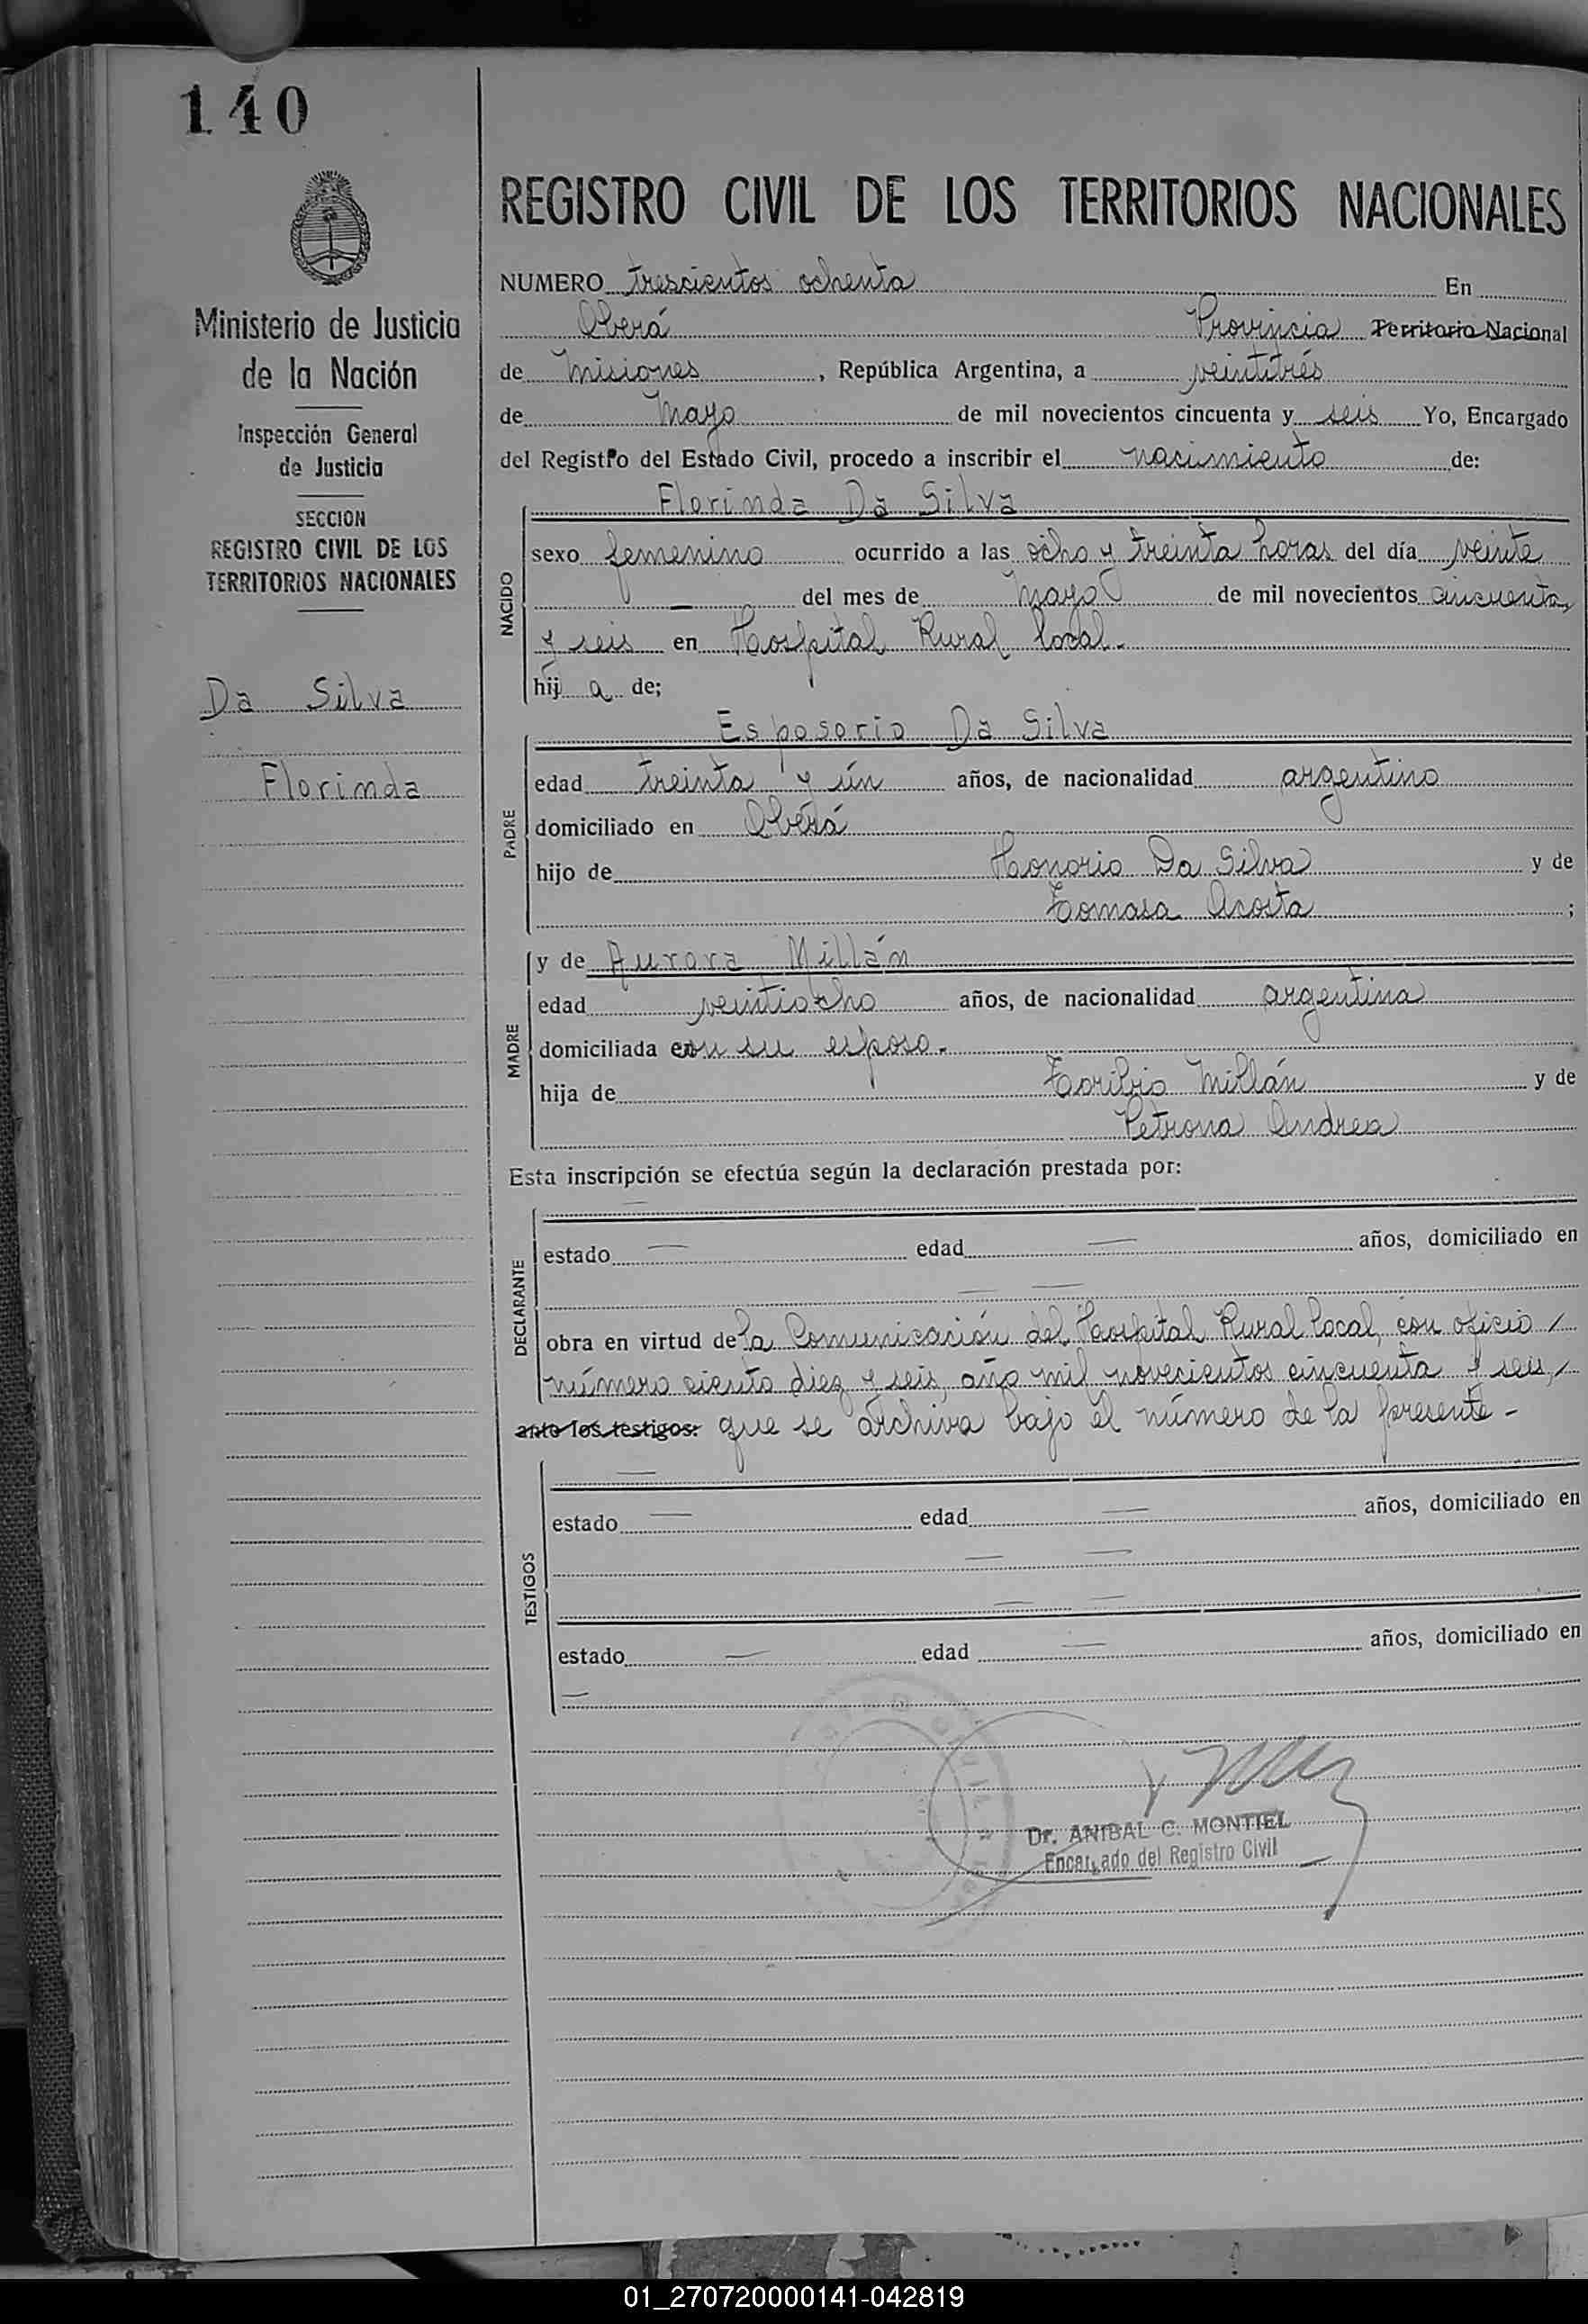 140
Ministerio de Justicia
de la Nación
Inspección General
de Justicia
SECCION
REGISTRO CIVIL DE LOS
TERRITORIOS NACIONALES
Da Silva
Florinda
REGISTRO CIVIL DE LOS TERRITORIOS NACIONALES
NUMERO trescientos ochenta En
Oberá Provincia Territorio Nacional
de Misiones, República Argentina, a veintitrés
de Mayo de mil novecientos cincuenta y seis Yo, Encargado
del Registro del Estado Civil, procedo a inscribir el nacimiento de:
NACIDO
Florinda Da Silva
sexo femenino ocurrido a las ocho y treinta horas del día veinte
— del mes de Mayo de mil novecientos cincuenta
y seis en Hospital Rural local.-
hija de;
PADRE
Esposorio Da Silva
edad treinta y ún años, de nacionalidad argentino
domiciliado en Oberá
hijo de Honorio Da Silva y de
Tomasa Acosta ;
MADRE
y de Aurora Millán
edad veintiocho años, de nacionalidad argentina
domiciliada con su esposo.-
hija de Toribio Millán y de
Petrona Andrea
Esta inscripción se efectúa según la declaración prestada por:
DECLARANTE
—
estado — edad — años, domiciliado en
— —
obra en virtud de la Comunicación del Hospital Rural local, con oficio /
número ciento diez y seis, año mil novecientos cincuenta y seis, /
ante los testigos: que se archiva bajo el número de la presente -
TESTIGOS
—
estado — edad — años, domiciliado en
— —
— —
estado — edad — años, domiciliado en
—
Dr. ANIBAL C. MONTIEL
Encargado del Registro Civil
01_270720000141-042819